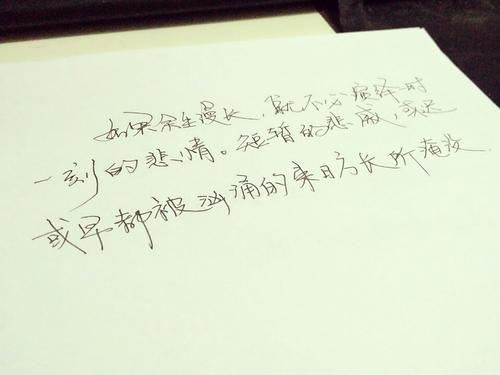 如果余生漫长,就不必演绎一时
一刻的悲情。短暂的悲戚,或迟
或早都被汹涌的来日方长所淹没